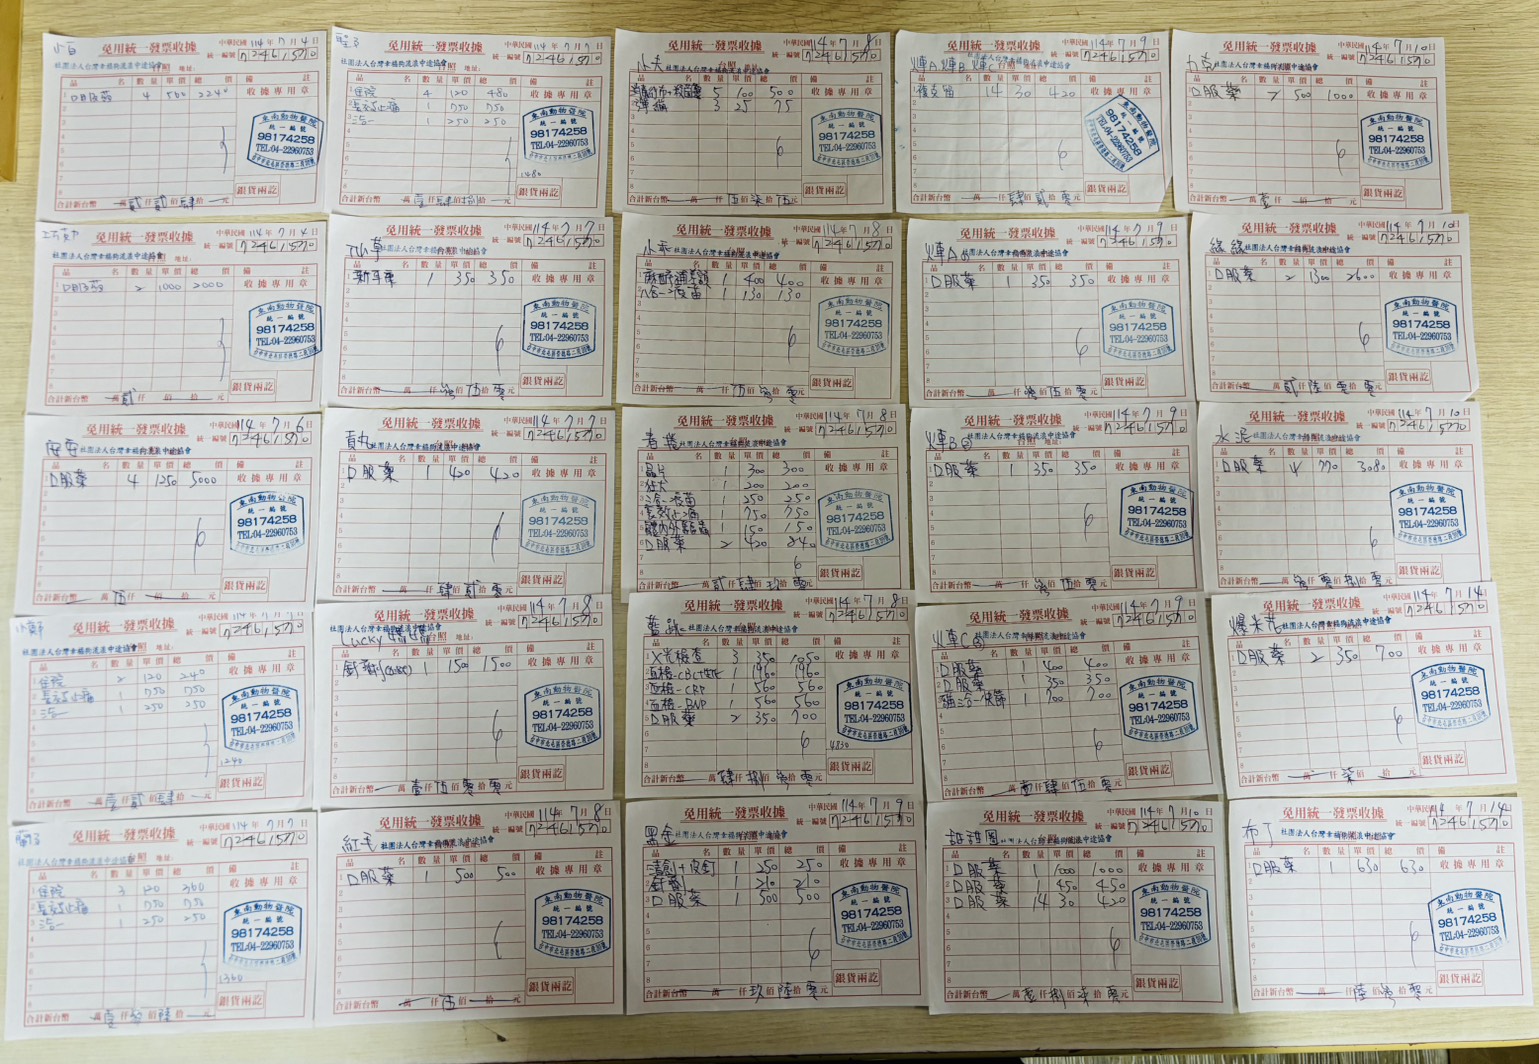 小百
免用統一發票收據
中華民國114年7月4日
統一編號 72461570
社團法人台灣幸福狗流浪中途協會 台照 地址:
品名 數量 單價 總價 備註
口服藥 4 560 2240
收據專用章
東南動物醫院
統一編號
98174258
TEL:04-22960753
銀貨兩訖
合計新台幣 萬貳仟貳佰肆拾元
免用統一發票收據
中華民國114年7月7日
統一編號 72461570
台照 地址:
品名 數量 單價 總價 備註
住院 4 120 480
長效止痛 1 750 750
三合一 250 250
收據專用章
東南動物醫院
統一編號
98174258
TEL:04-22960753
1480
銀貨兩訖
合計新台幣 萬壹仟肆佰捌拾元
小夫
免用統一發票收據
114年7月8日
72461570
社團法人台灣幸福狗流浪中途協會
品名 數量 單價 總價 備註
5 100 500
彈繃 3 25 75
收據專用章
東南動物醫院
統一編號
98174258
TEL:04-22960753
銀貨兩訖
合計新台幣 萬仟伍佰柒拾伍元
火車A 火車B 火車C
免用統一發票收據
114年7月9日
72461570
品名 數量 單價 總價 備註
14 30 420
收據專用章
東南動物醫院
統一編號
98174258
TEL:04-22960753
銀貨兩訖
合計新台幣 萬仟肆佰貳拾零元
免用統一發票收據
114年7月10日
72461570
品名 數量 單價 總價 備註
口服藥 2 500 1000
收據專用章
東南動物醫院
統一編號
98174258
TEL:04-22960753
銀貨兩訖
合計新台幣 萬壹仟佰拾元
免用統一發票收據
中華民國114年7月4日
統一編號 72461570
社團法人台灣幸福狗流浪中途協會 台照 地址:
品名 數量 單價 總價 備註
口服藥 2 1000 2000
收據專用章
東南動物醫院
統一編號
98174258
TEL:04-22960753
銀貨兩訖
合計新台幣 萬貳仟佰拾元
仙草
免用統一發票收據
114年7月7日
72461570
社團法人台灣幸福狗流浪中途協會
品名 數量 單價 總價 備註
1 350 350
收據專用章
東南動物醫院
統一編號
98174258
TEL:04-22960753
銀貨兩訖
合計新台幣 萬仟參佰伍拾零元
小乖
免用統一發票收據
114年7月8日
72461570
社團法人台灣幸福狗流浪中途協會
品名 數量 單價 總價 備註
1 400 400
八合一疫苗 1 130 130
收據專用章
東南動物醫院
統一編號
98174258
TEL:04-22960753
銀貨兩訖
合計新台幣 萬仟伍佰參拾零元
火車A
免用統一發票收據
114年7月9日
72461570
社團法人台灣幸福狗流浪中途協會
品名 數量 單價 總價 備註
口服藥 1 350 350
收據專用章
東南動物醫院
統一編號
98174258
TEL:04-22960753
銀貨兩訖
合計新台幣 萬仟參佰伍拾零元
綠綠
免用統一發票收據
114年7月10日
72461570
社團法人台灣幸福狗流浪中途協會
品名 數量 單價 總價 備註
口服藥 2 1300 2600
收據專用章
東南動物醫院
統一編號
98174258
TEL:04-22960753
銀貨兩訖
合計新台幣 萬貳仟陸佰零拾零元
安安
免用統一發票收據
114年7月6日
72461570
社團法人台灣幸福狗流浪中途協會
品名 數量 單價 總價 備註
口服藥 4 1250 5000
收據專用章
東南動物醫院
統一編號
98174258
TEL:04-22960753
銀貨兩訖
合計新台幣 萬伍仟佰拾元
免用統一發票收據
114年7月7日
72461570
社團法人台灣幸福狗流浪中途協會
品名 數量 單價 總價 備註
口服藥 1 420 420
收據專用章
東南動物醫院
統一編號
98174258
TEL:04-22960753
銀貨兩訖
合計新台幣 萬仟肆佰貳拾零元
免用統一發票收據
114年7月8日
72461570
社團法人台灣幸福狗流浪中途協會
品名 數量 單價 總價 備註
晶片 1 300 300
1 200 200
三合一疫苗 1 250 250
長效止痛 1 750 750
體內外驅蟲 1 150 150
口服藥 2 420 840
收據專用章
東南動物醫院
統一編號
98174258
TEL:04-22960753
銀貨兩訖
合計新台幣 萬貳仟肆佰玖拾零元
火車B
免用統一發票收據
114年7月9日
72461570
社團法人台灣幸福狗流浪中途協會
品名 數量 單價 總價 備註
口服藥 1 350 350
收據專用章
東南動物醫院
統一編號
98174258
TEL:04-22960753
銀貨兩訖
合計新台幣 萬仟參佰伍拾零元
水泥
免用統一發票收據
114年7月10日
72461570
社團法人台灣幸福狗流浪中途協會
品名 數量 單價 總價 備註
口服藥 4 770 3080
收據專用章
東南動物醫院
統一編號
98174258
TEL:04-22960753
銀貨兩訖
合計新台幣 萬參仟零佰捌拾零元
免用統一發票收據
中華民國114年7月7日
統一編號 72461570
社團法人台灣幸福狗流浪中途協會 台照 地址:
品名 數量 單價 總價 備註
住院 2 120 240
長效止痛 1 750 750
三合一 1 250 250
收據專用章
東南動物醫院
統一編號
98174258
TEL:04-22960753
1240
銀貨兩訖
合計新台幣 萬壹仟貳佰肆拾元
LUCKY
免用統一發票收據
114年7月8日
72461570
社團法人台灣幸福狗流浪中途協會
品名 數量 單價 總價 備註
1 1500 1500
收據專用章
東南動物醫院
統一編號
98174258
TEL:04-22960753
銀貨兩訖
合計新台幣 萬壹仟伍佰零拾零元
免用統一發票收據
114年7月8日
72461570
社團法人台灣幸福狗流浪中途協會
品名 數量 單價 總價 備註
X光檢查 3 350 1050
1 1960 1960
血檢-CRP 1 560 560
血檢-BNP 1 560 560
口服藥 2 350 700
收據專用章
東南動物醫院
統一編號
98174258
TEL:04-22960753
4830
銀貨兩訖
合計新台幣 萬肆仟捌佰參拾零元
火車C
免用統一發票收據
114年7月9日
72461570
社團法人台灣幸福狗流浪中途協會
品名 數量 單價 總價 備註
口服藥 1 400 400
口服藥 1 350 350
1 700 700
收據專用章
東南動物醫院
統一編號
98174258
TEL:04-22960753
銀貨兩訖
合計新台幣 萬壹仟肆佰伍拾零元
爆米花
免用統一發票收據
114年7月14日
72461570
社團法人台灣幸福狗流浪中途協會
品名 數量 單價 總價 備註
口服藥 2 350 700
收據專用章
東南動物醫院
統一編號
98174258
TEL:04-22960753
銀貨兩訖
合計新台幣 萬仟柒佰拾元
免用統一發票收據
中華民國114年7月7日
統一編號 72461570
社團法人台灣幸福狗流浪中途協會 台照 地址:
品名 數量 單價 總價 備註
住院 3 120 360
長效止痛 1 750 750
三合一 1 250 250
收據專用章
東南動物醫院
統一編號
98174258
TEL:04-22960753
1360
銀貨兩訖
合計新台幣 萬壹仟參佰陸拾元
紅毛
免用統一發票收據
114年7月8日
72461570
社團法人台灣幸福狗流浪中途協會
品名 數量 單價 總價 備註
口服藥 1 500 500
收據專用章
東南動物醫院
統一編號
98174258
TEL:04-22960753
銀貨兩訖
合計新台幣 萬仟伍佰拾元
黑金
免用統一發票收據
114年7月9日
72461570
社團法人台灣幸福狗流浪中途協會
品名 數量 單價 總價 備註
清創+皮釘 1 250 250
針藥 1 210 210
口服藥 1 500 500
收據專用章
東南動物醫院
統一編號
98174258
TEL:04-22960753
銀貨兩訖
合計新台幣 萬仟玖佰陸拾零元
免用統一發票收據
114年7月10日
72461570
社團法人台灣幸福狗流浪中途協會
品名 數量 單價 總價 備註
口服藥 1 1000 1000
口服藥 1 450 450
口服藥 14 30 420
收據專用章
東南動物醫院
統一編號
98174258
TEL:04-22960753
銀貨兩訖
合計新台幣 萬壹仟捌佰柒拾零元
布丁
免用統一發票收據
114年7月14日
72461570
社團法人台灣幸福狗流浪中途協會
品名 數量 單價 總價 備註
口服藥 1 630 630
收據專用章
東南動物醫院
統一編號
98174258
TEL:04-22960753
銀貨兩訖
合計新台幣 萬仟陸佰參拾零元